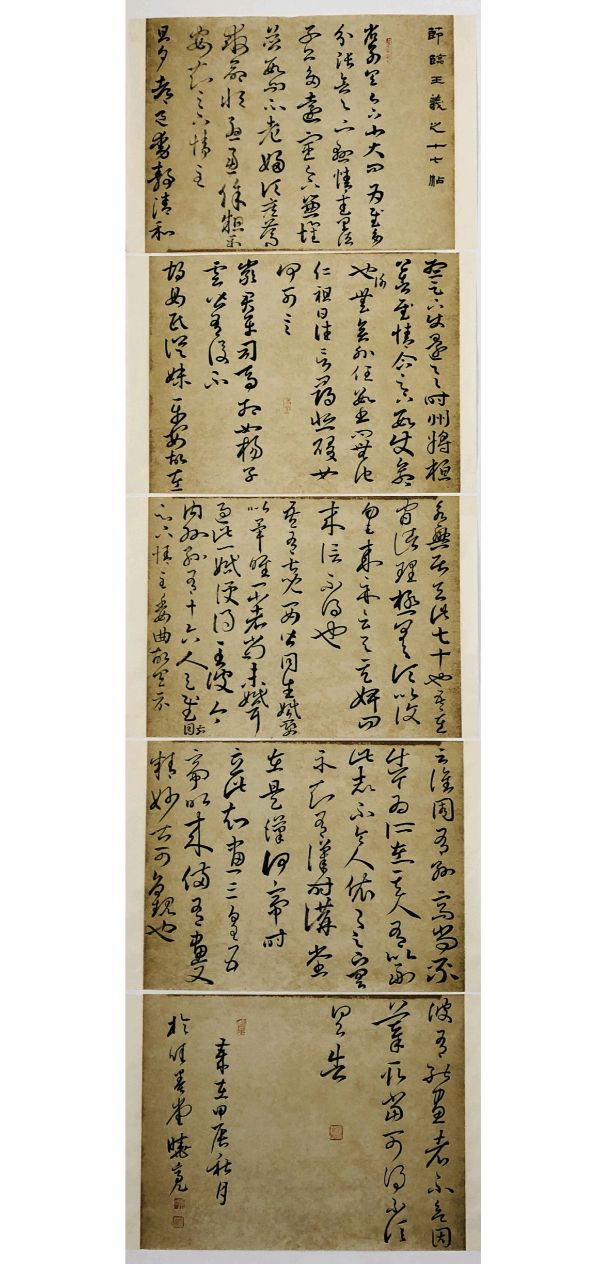 節臨王羲之十七帖
省別具足下小大問為慰多
分張念足下懸情武昌諸
子亦多遠宦足下兼懷
並數問不老婦頃疾篤
救命恒憂慮餘粗平
安知足下情至
旦夕都邑動靜清和
想足下使還一一時州將桓
公告慰情企足下數使命
也謝無奕外任數書問無他
仁祖日往言尋悲酸如
何可言
嚴君平司馬相如楊子
雲皆有後不
胡母氏從妹平安故在
永興居去此七十也吾在
官諸理極差頃比復
勿勿來示云與其婢問
來信不得也
吾有七兒一女皆同生婚娶
以畢唯一小者尚未婚耳
過此一婚便得至彼今
內外孫有十六人足慰目前
足下情至委曲故具示
云譙周有孫高尚不
出今為所在其人有以副
此志不令人依依足下具
示知有漢時講堂
在是漢何帝時
立此知畫三皇五
帝以來備有畫又
精妙甚可觀也
彼有能畫者不欲因
摹取當可得不須
具告
歲在甲辰秋月
於善堂曉亮